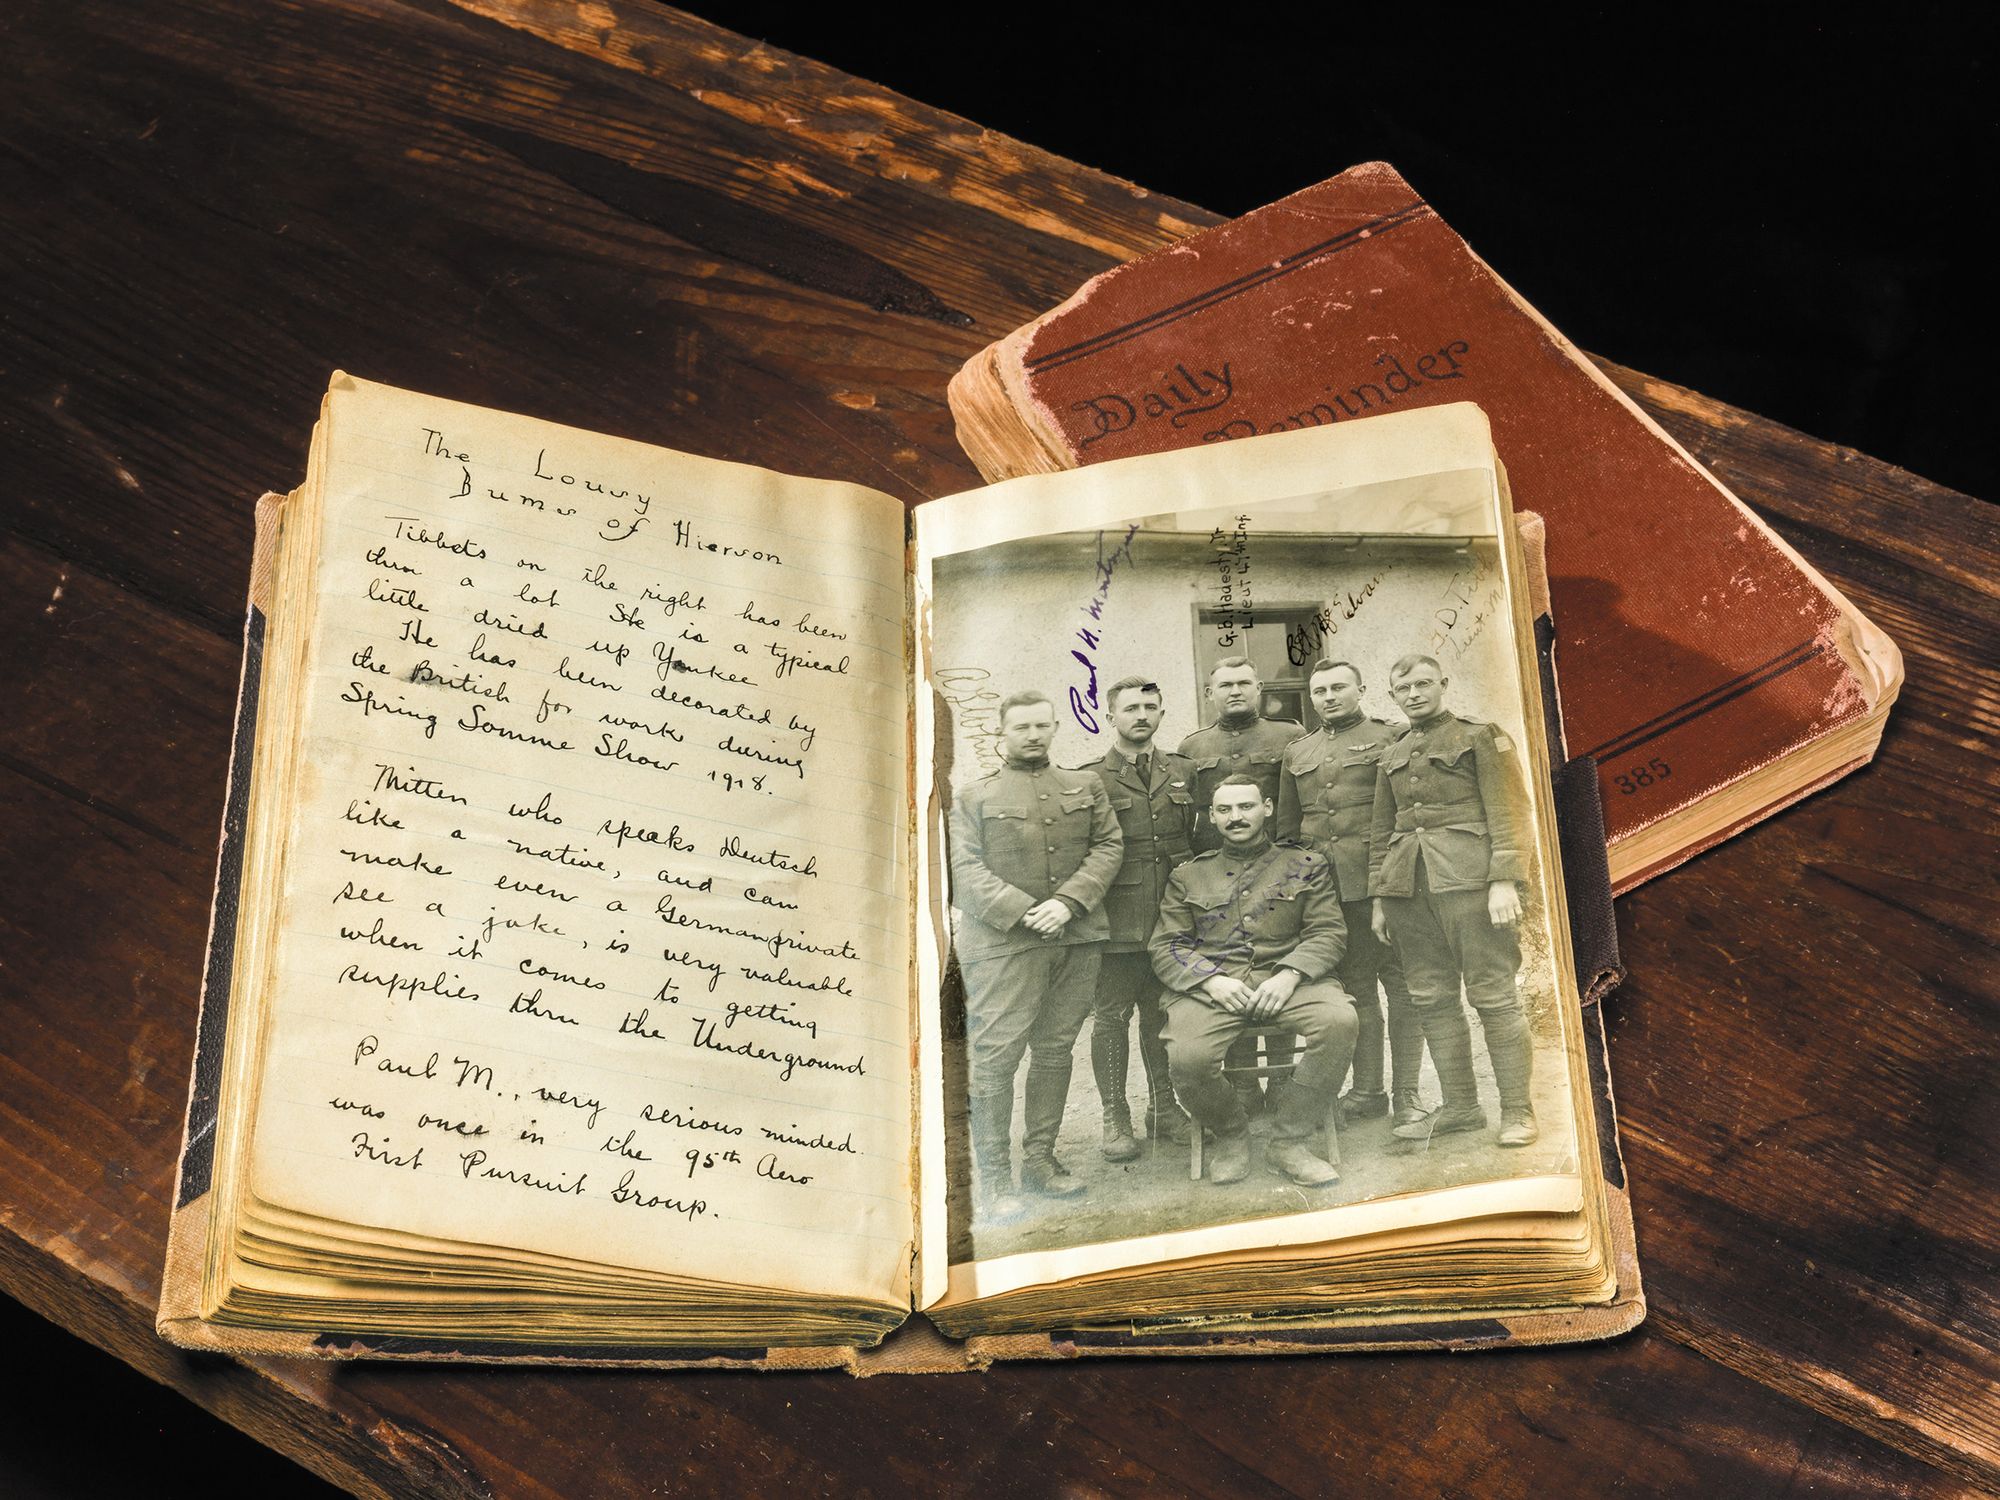 The Lousy
Bums of Hierson
Tibbets on the right has been
thru a lot She is a typical
little dried up Yankee
He has been decorated by
the British for work during
Spring Somme Show 1918.
Mitten who speaks Deutsch
like a native, and can
make even a German private
see a joke, is very valuable
when it comes to getting
supplies thru the Underground
Paul M., very serious minded.
was once in the 95th Aero
First Pursuit Group.
Paul N. Montague
G.B. Hadesty Jr
Lieut 47th Inf.
Daily
Reminder
385